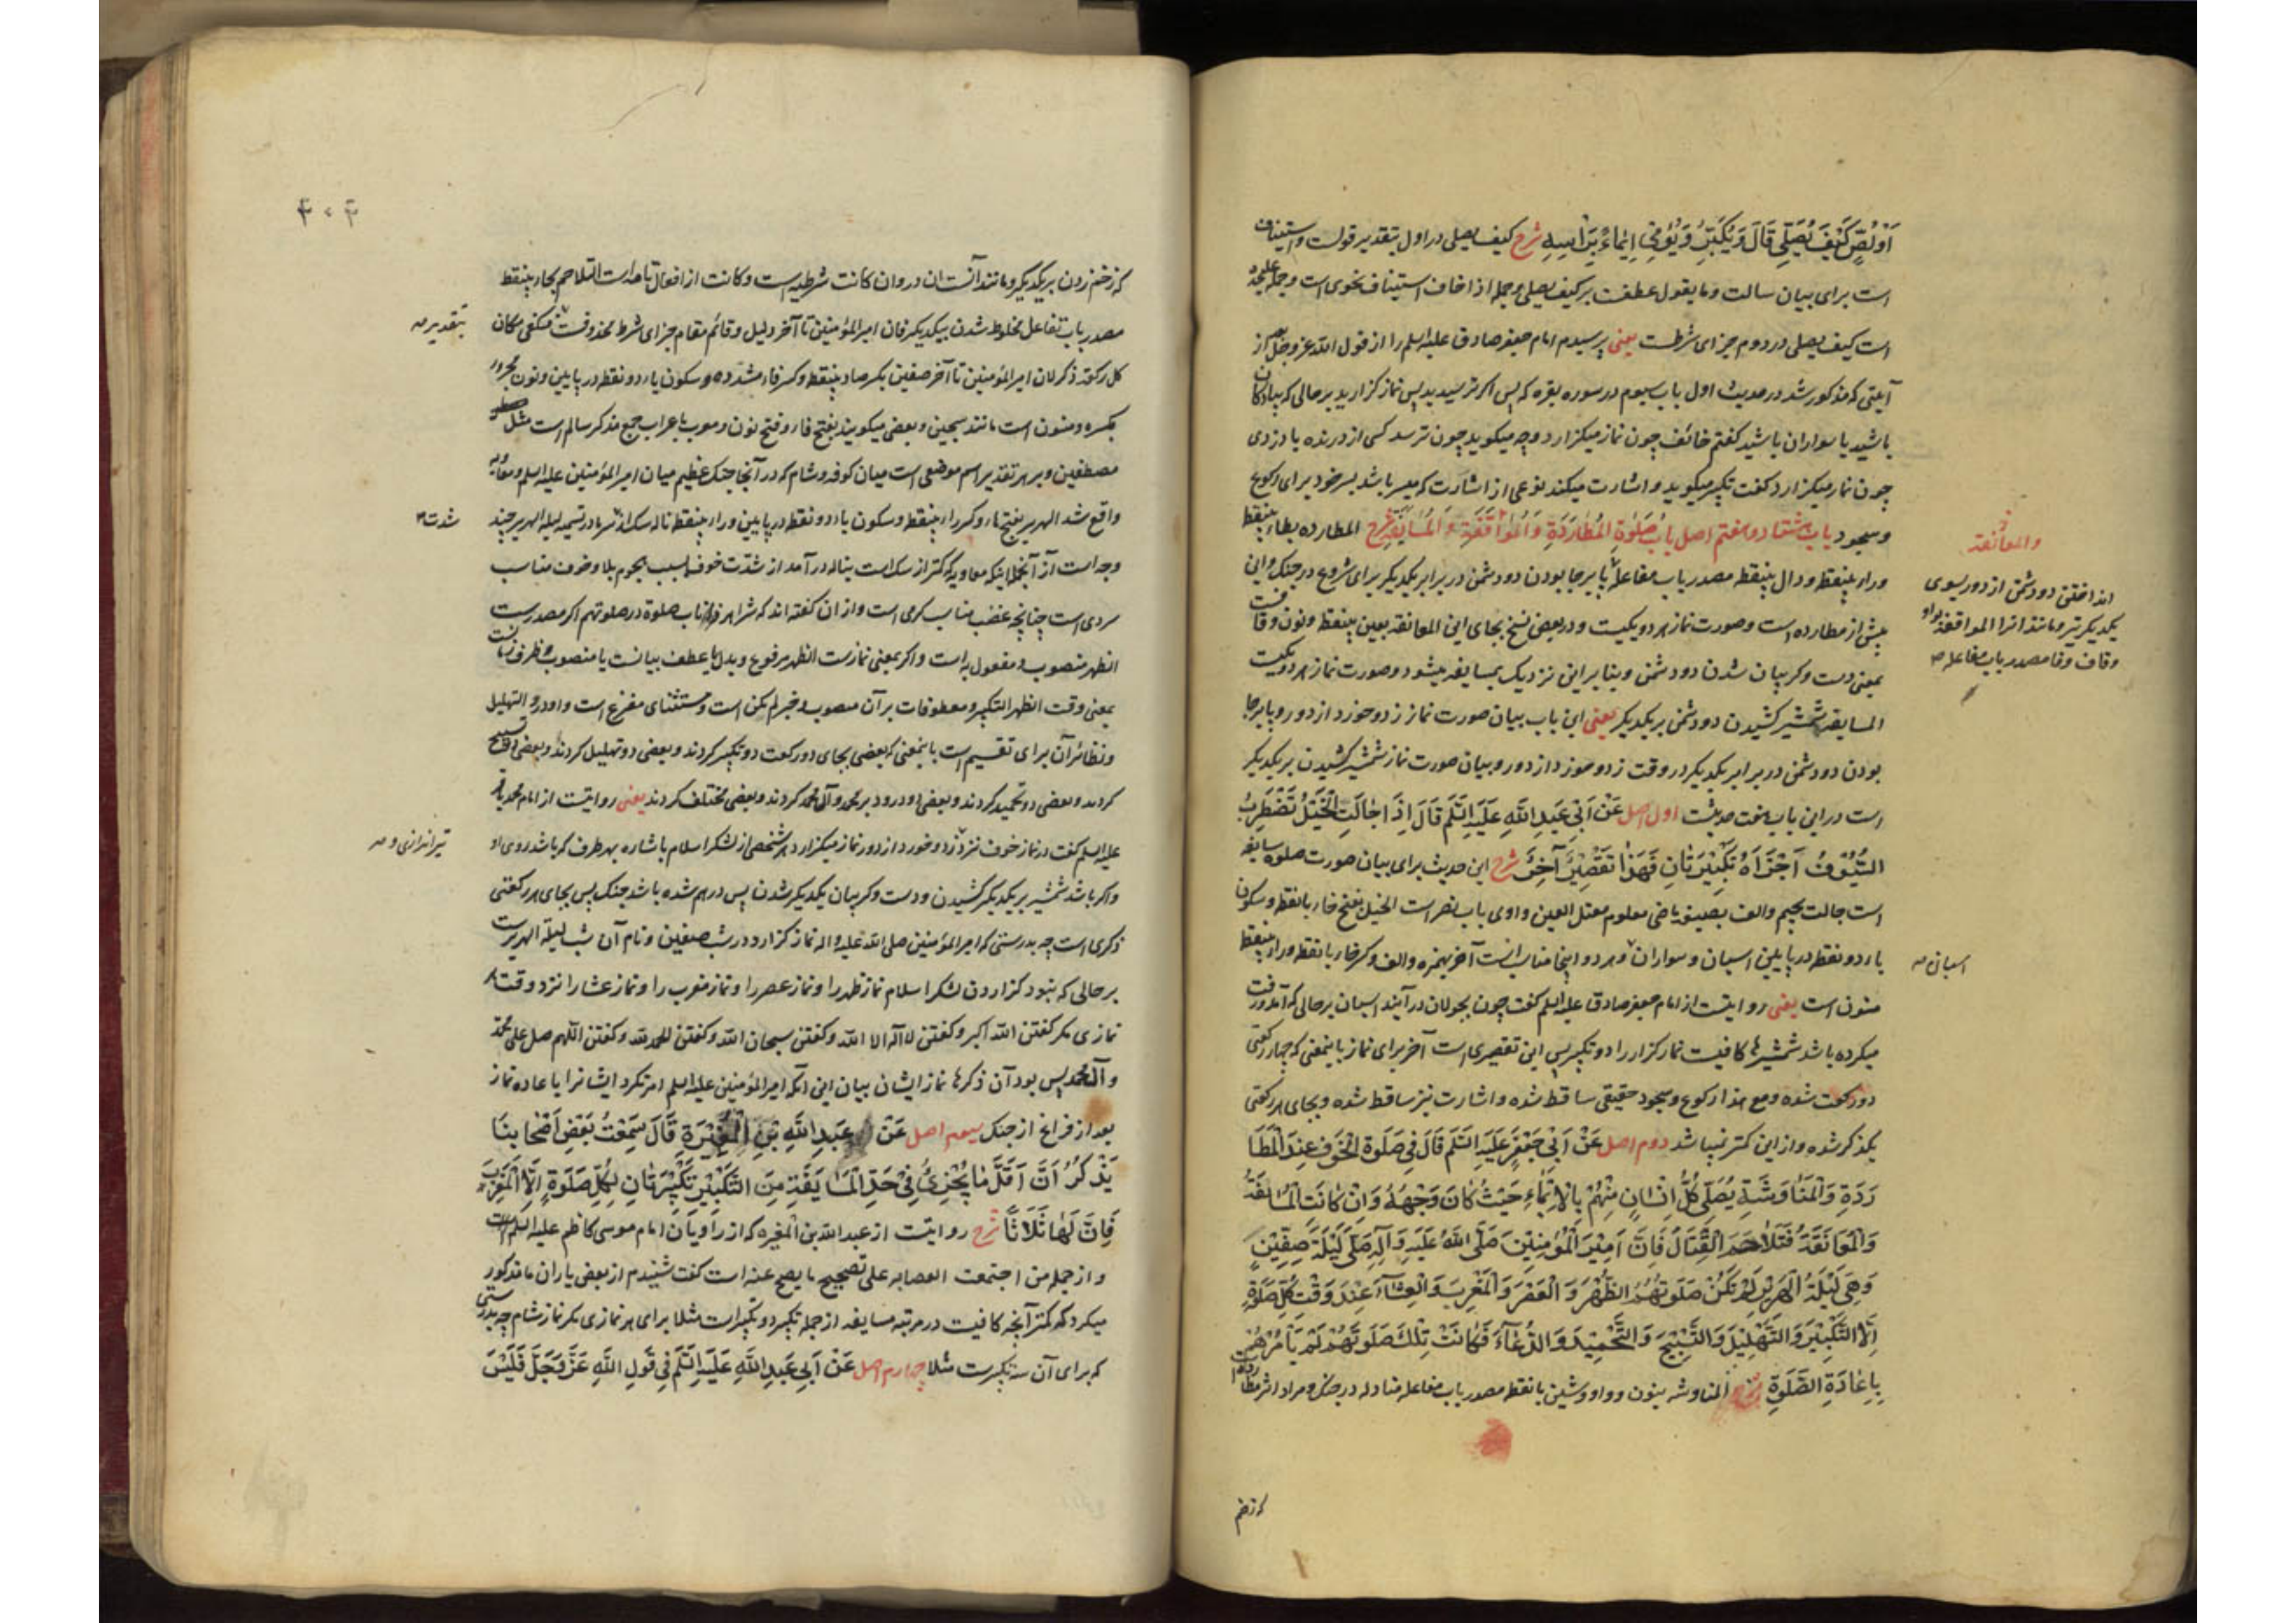 اَوْ لِصٍّ كَيْفَ يُصَلِّي قَالَ وَ يُكَبِّرُ وَ يُومِي اِيمَاءً بِرَأْسِهِ شرح كيف يصلی در اول بتقدير قولست و استيناف
است برای بيان سالت و ما يقول عطفست بر كيف يصلی و جمله اذا خاف استيناف نحوی است و جمله
است كيف يصلی در دوم جزای شرطست يعنی پرسيدم امام جعفر صادق عليه السلم را از قول الله عز و جل
آيتی كه مذكور شد در حديث اول باب سيوم در سوره بقره كه پس اگر ترسيديد پس نماز گزاريد بر حالی كه پيادگان
باشيد يا سواران باشيد گفتم خائف چون نماز ميگزارد و چه ميگويد چون ترسد كسی از درنده يا دزدی
چون نماز ميگزارد گفت تكبير ميگويد و اشارت ميكند نوعی از اشارت كه ميسر باشد بسر خود برای ركوع
و سجود باب هشتاد و هفتم اصل بَابُ صَلٰوةِ الْمُطَارَدَةِ وَ الْمُوَاقَفَةِ وَ الْمُسَايَفَةِ شرح المطارده بطاء بينقطه
و راء بينقطه و دال بينقطه مصدر باب مفاعله پا بر جا بودن دو دشمن در برابر يكديگر برای شروع در جنگ و اين
پيش از مطارده است و صورت نماز هر دو يكيست و در بعض نسخ بجای اين المعانقه بعين بينقطه و نون و قاف
بمعنی دست و گريبان شدن دو دشمن و بنابراين نزديك بمسايفه ميشود و صورت نماز هر دو يكيست
المسايفه شمشير كشيدن دو دشمن بر يكديگر يعنی اين باب بيان صورت نماز زد و خورد از دور و پا بر جا
بودن دو دشمن در برابر يكديگر در وقت زد و خورد از دور و بيان صورت نماز شمشير كشيدن بر يكديگر
است در اين باب هفت حديثست اول اصل عَنْ اَبِي عَبْدِ اللّٰهِ عَلَيْهِ السَّلَم قَالَ اِذَا جَالَتِ الْخَيْلُ تَضْطَرِبُ
السُّيُوفُ اَجْزَأَهُ تَكْبِيرَتَانِ فَهَذَا تَقْصِيرٌ آخَرُ شرح اين حديث برای بيان صورت صلوة مسايفه
است جالت بجيم و الف بصيغه ماضی معلوم معتل العين واوی باب نصر است الخيل بفتح خاء بانقطه و سكون
ياء دو نقطه در پايين اسبان و سواران و هر دو اينجا مناسب است آخر بهمزه و الف و كسر خاء بانقطه و راء بينقطه
منون است يعنی روايتست از امام جعفر صادق عليه السلم گفت چون بجولان در آيند اسبان بر حالی كه آمد و رفت
ميكرده باشد شمشيرها كافيست نمازگزار را دو تكبير پس اين تقصيری است آخر برای نماز باينمعنی كه چهار ركعتی
دو ركعت شده و مع هذا ركوع و سجود حقيقی ساقط شده و اشارت نيز ساقط شده و بجای هر ركعتی
يك ذكر شده و از اين كمتر نميباشد دوم اصل عَنْ اَبِي جَعْفَرٍ عَلَيْهِ السَّلَم قَالَ فِي صَلَوةِ الْخَوْفِ عِنْدَ الْمُطَا
رَدَةِ وَ الْمُنَاوَشَةِ يُصَلِّي كُلُّ اِنْسَانٍ مِنْهُمْ بِالْاِيمَاءِ حَيْثُ كَانَ وَجْهُهُ وَ اِنْ كَانَتِ الْمُسَايَفَةُ
وَ الْمُعَانَقَةُ فَتَلَاحَمَ الْقِتَالُ فَاِنَّ اَمِيرَ الْمُؤْمِنِينَ صَلَّى اللّٰهُ عَلَيْهِ وَ آلِهِ صَلَّى لَيْلَةَ صِفِّينٍ
وَ هِيَ لَيْلَةُ الْهَرِيرِ لَمْ تَكُنْ صَلَوتُهُمُ الظُّهْرَ وَ الْعَصْرَ وَ الْمَغْرِبَ وَ الْعِشَآءَ عِنْدَ وَقْتِ كُلِّ صَلَوةٍ
اِلَّا التَّكْبِيرَ وَ التَّهْلِيلَ وَ التَّسْبِيحَ وَ التَّحْمِيدَ وَ الدُّعَآءَ فَكَانَتْ تِلْكَ صَلَوتَهُمْ لَمْ يَأْمُرْهُمْ
بِاِعَادَةِ الصَّلَوةِ شرح المناوشه بنون و واو و شين بانقطه مصدر باب مفاعله مناوله در جنگ و مراد اثر مطارده
كه زخم
والمعانقة
انداختن دو دشمن از دور بسوی
يكديگر تير و مانند آنرا المواقفه بواو
و قاف و فا مصدر باب مفاعله
اسبان
۳۰۳
كه زخم زدن بر يكديگر و مانند آنست ان در و ان كانت شرطيه است و كانت از افعال تامه است التلاحم بحاء بينقطه
مصدر باب تفاعل مخلوط شدن بيكديگر فان امير المؤمنين تا آخر دليل و قائم مقام جزای شرط محذوفست فيكفی مكان
كل ركعة ذكر لان امير المؤمنين تا آخر صفين بكسر صاد بينقطه و كسر فاء مشدده و سكون ياء دو نقطه در پايين و نون مجرور
بكسره و منون است مانند سجين و بعضی ميگويند بفتح فاء و فتح نون و معرب باعراب جمع مذكر سالم است مثل
مصطفين و بر هر تقدير اسم موضعی است ميان كوفه و شام كه در آنجا جنگ عظيم ميان امير المؤمنين عليه السلم و معويه
واقع شد الهرير بفتح هاء و كسر راء بينقطه و سكون ياء دو نقطه در پايين و راء بينقطه ناله سگ از سرما در تسميه ليلة الهرير چند
وجه است از آنجمله اينكه معاويه كه كمتر از سگ است بناله در آمد از شدت خوف بسبب هجوم بلا و خوف مناسب
سردی است چنانچه غضب مناسب گرمی است و از ان گفته اند كه شر اهر ذا ناب صلوة در صلوتهم اگر مصدر است
الظهر منصوب و مفعول به است و اگر بمعنی نماز است الظهر مرفوع و بدل يا عطف بيانست يا منصوب و ظرف زمانست
بمعنی وقت الظهر التكبير و معطوفات بر آن منصوب و خبر لم تكن است و مستثنای مفرغ است و او در و التهليل
و نظائر آن برای تقسيم است باينمعنی كه بعضی بجای دو ركعت دو تكبير كردند و بعضی دو تهليل كردند و بعضی دو تسبيح
كردند و بعضی دو تحميد كردند و بعضی دو درود بر محمد و آل محمد كردند و بعضی مختلف كردند يعنی روايتست از امام محمد باقر
عليه السلم گفت در نماز خوف نزد زد و خورد از دور نماز ميگزارد هر شخصی از لشكر اسلام باشاره بهر طرف كه باشد روی او
و اگر باشد شمشير بر يكديگر كشيدن و دست و گريبان يكديگر شدن پس درهم شده باشد جنگ پس بجای هر ركعتی
ذكری است چه بدرستی كه امير المؤمنين صلی الله عليه و اله نماز گزارد در شب صفين و نام آن شب ليلة الهرير است
بر حالی كه نبود گزاردن لشكر اسلام نماز ظهر را و نماز عصر را و نماز مغرب را و نماز عشا را نزد وقت هر
نمازی مگر گفتن الله اكبر و گفتن لا اله الا الله و گفتن سبحان الله و گفتن الحمد لله و گفتن اللهم صل علی محمد
و آل محمد پس بود آن ذكرها نماز ايشان بيان اين آنكه امير المؤمنين عليه السلم امر نكرد ايشانرا باعاده نماز
بعد از فراغ از جنگ سيوم اصل عَنْ عَبْدِ اللّٰهِ بْنِ الْمُغِيرَةِ قَالَ سَمِعْتُ بَعْضَ اَصْحَابِنَا
يَذْكُرُ اَنَّ اَقَلَّ مَا يُجْزِئُ فِي حَدِّ الْمُسَايَفَةِ مِنَ التَّكْبِيرِ تَكْبِيرَتَانِ لِكُلِّ صَلَوةٍ اِلَّا الْمَغْرِبَ
فَاِنَّ لَهَا ثَلَاثًا شرح روايتست از عبد الله بن المغيره كه از راويان امام موسی كاظم عليه السلم است
و از جمله من اجتمعت العصابه علی تصحيح ما يصح عنه است گفت شنيدم از بعض ياران ما مذكور
ميكرد كه كمتر آنچه كافيست در مرتبه مسايفه از جمله تكبير دو تكبير است مثلا برای هر نمازی مگر نماز شام چه بدرستی
كه برای آن سه تكبيرست مثلا چهارم اصل عَنْ اَبِي عَبْدِ اللّٰهِ عَلَيْهِ السَّلَم فِي قَوْلِ اللّٰهِ عَزَّ وَ جَلَّ فَلَيْسَ
بتقدير
شدت
تيراندازی و